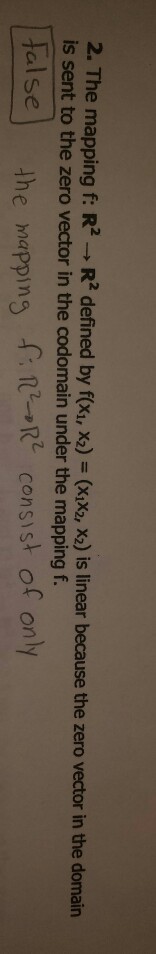 2. The mapping f: R² → R² defined by f(x₁, x₂) = (x₁x₂, x₂) is linear because the zero vector in the domain
is sent to the zero vector in the codomain under the mapping f.
False the mapping f: R²→R² consist of only